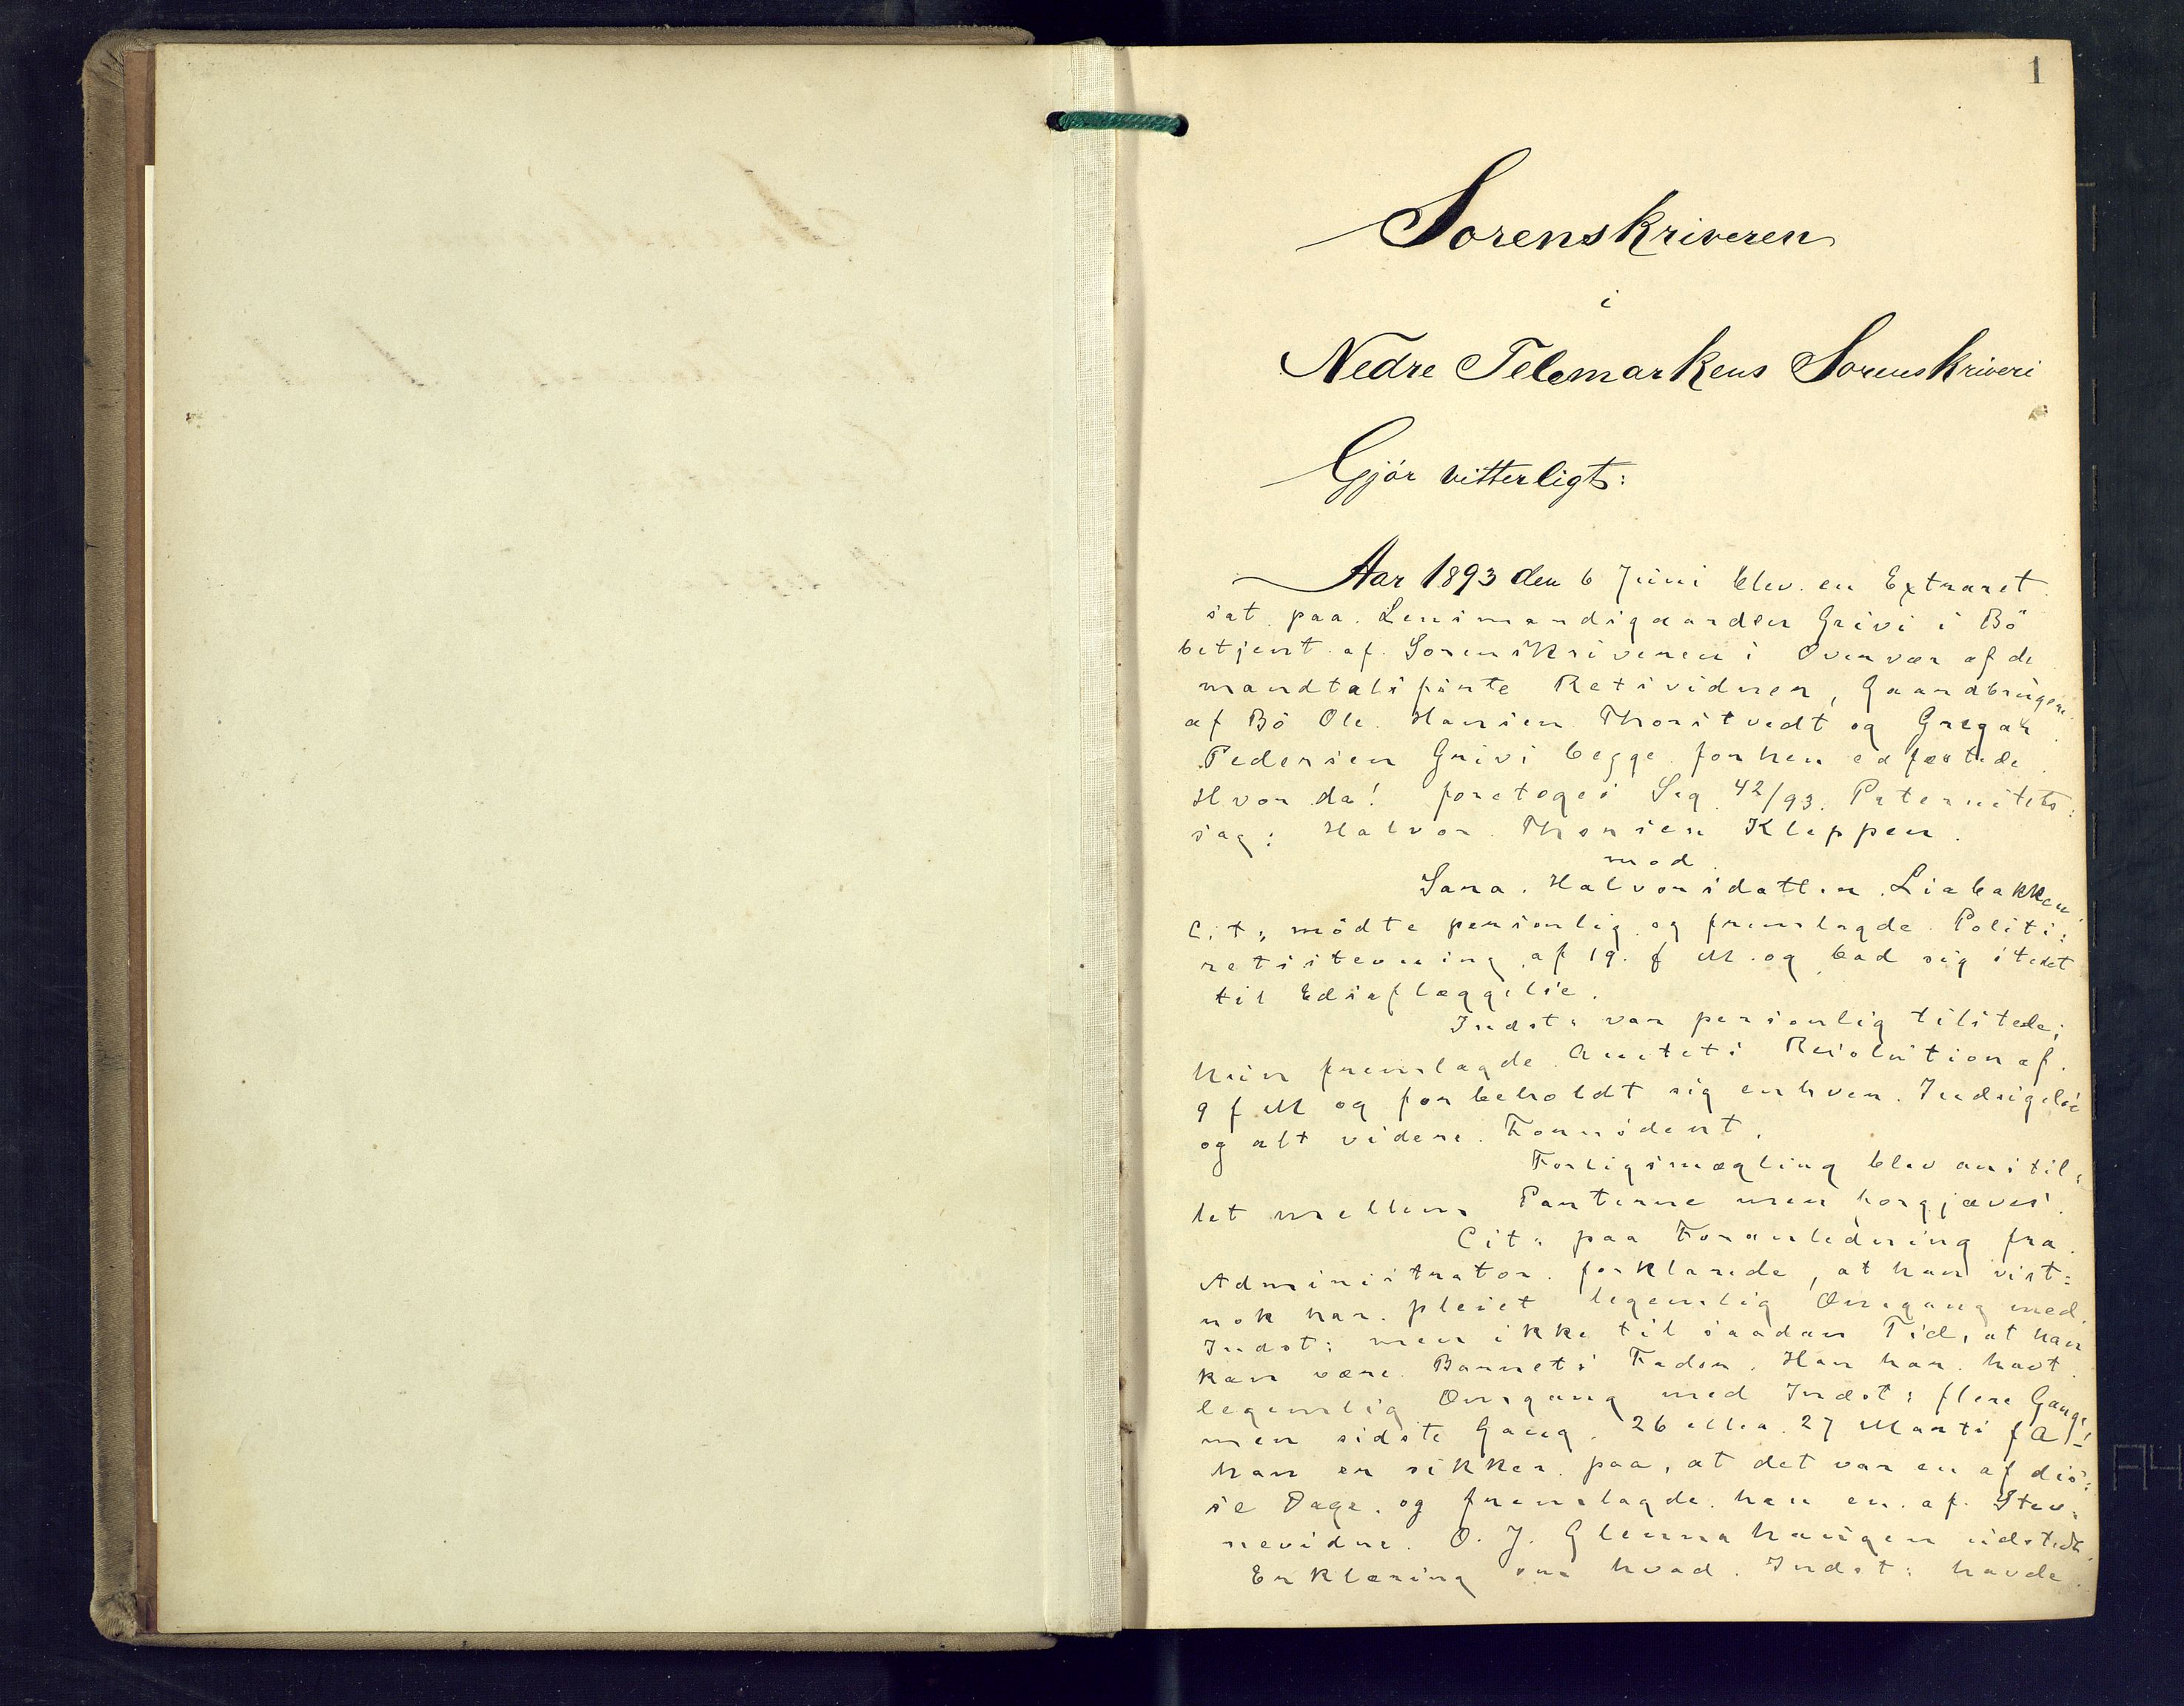 1
Sorenskriveren
i
Nedre Telemarkens Sorenskriveri
Gjör vitterligt:
Aar 1893 den 6 Juni blev en Extraret
sat paa Lensmandsgaarden Grivi i Bö
betjent af Sorenskriveren i Overvær af de
mandtalsførte Retsvidner, Gaardbrugere
af Bö Ole Hansen Thorstvedt og Gregar
Pedersen Grivi begge forhen edfæstede
Hvor da! foretoges Sag 42/93. Paternitets:
sag: Halvor Thorsen Kleppen
mod
Sara Halvorsdatter Liabakken
C. t, mödte personlig og fremlagde Politi:
retsstevning af 19. f M. og bad sig stedet
til Edsaflæggelse.
Indst: var personlig tilstede;
hun fremlagde Amtets Resolution af
9 f M og forbeholdt sig enhver Indsigelse
og alt videre Fornödent.
Forligsmægling blev anstil:
let mellem Parterne men forgjæves.
Cit: paa Foranledning fra
Administrator forklarede, at han vist:
nok har pleiet legemlig Omgang med
Indst: men ikke til saadan Tid, at han
kan være Barnets Fader. Han har havt
legemlig Omgang med Indst: flere Gange
men sidste Gang 26 eller 27 Marti f A!
han er sikker paa, at det var en af dis:
se Dage og fremlagde han en af Stev:
nevidne O. J. Glennahaugen udstedt
Erklæring om hvad Indst: havde